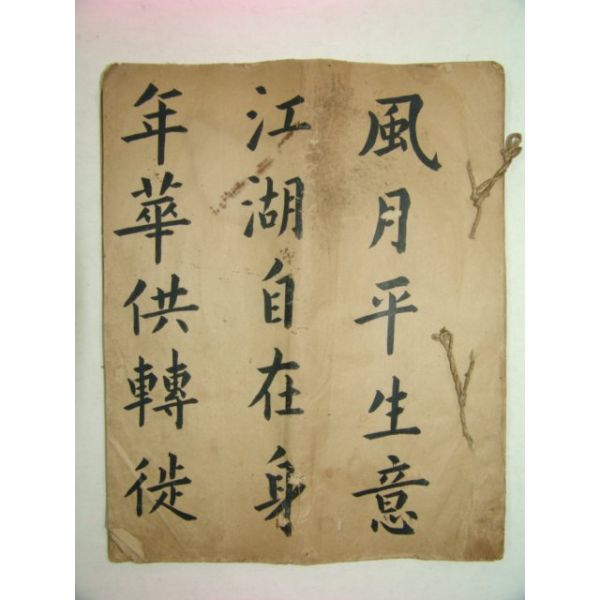 風月平生意
江湖自在身
年華供轉徙